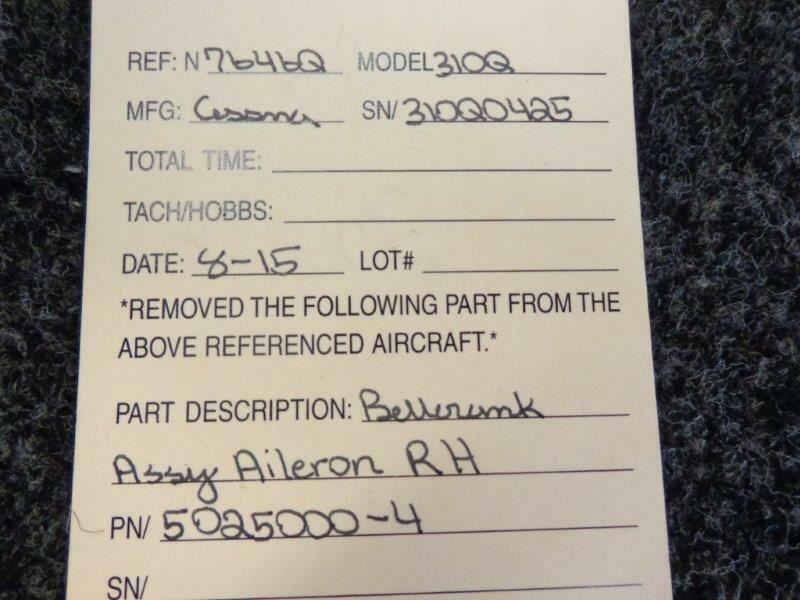 REF: N 7646Q MODEL 310Q
MFG: Cessna SN/ 310Q0425
TOTAL TIME:
TACH/HOBBS:
DATE: 8-15 LOT#
*REMOVED THE FOLLOWING PART FROM THE
ABOVE REFERENCED AIRCRAFT.*
PART DESCRIPTION: Bellcrank
Assy Aileron RH
PN/ 5025000-4
SN/